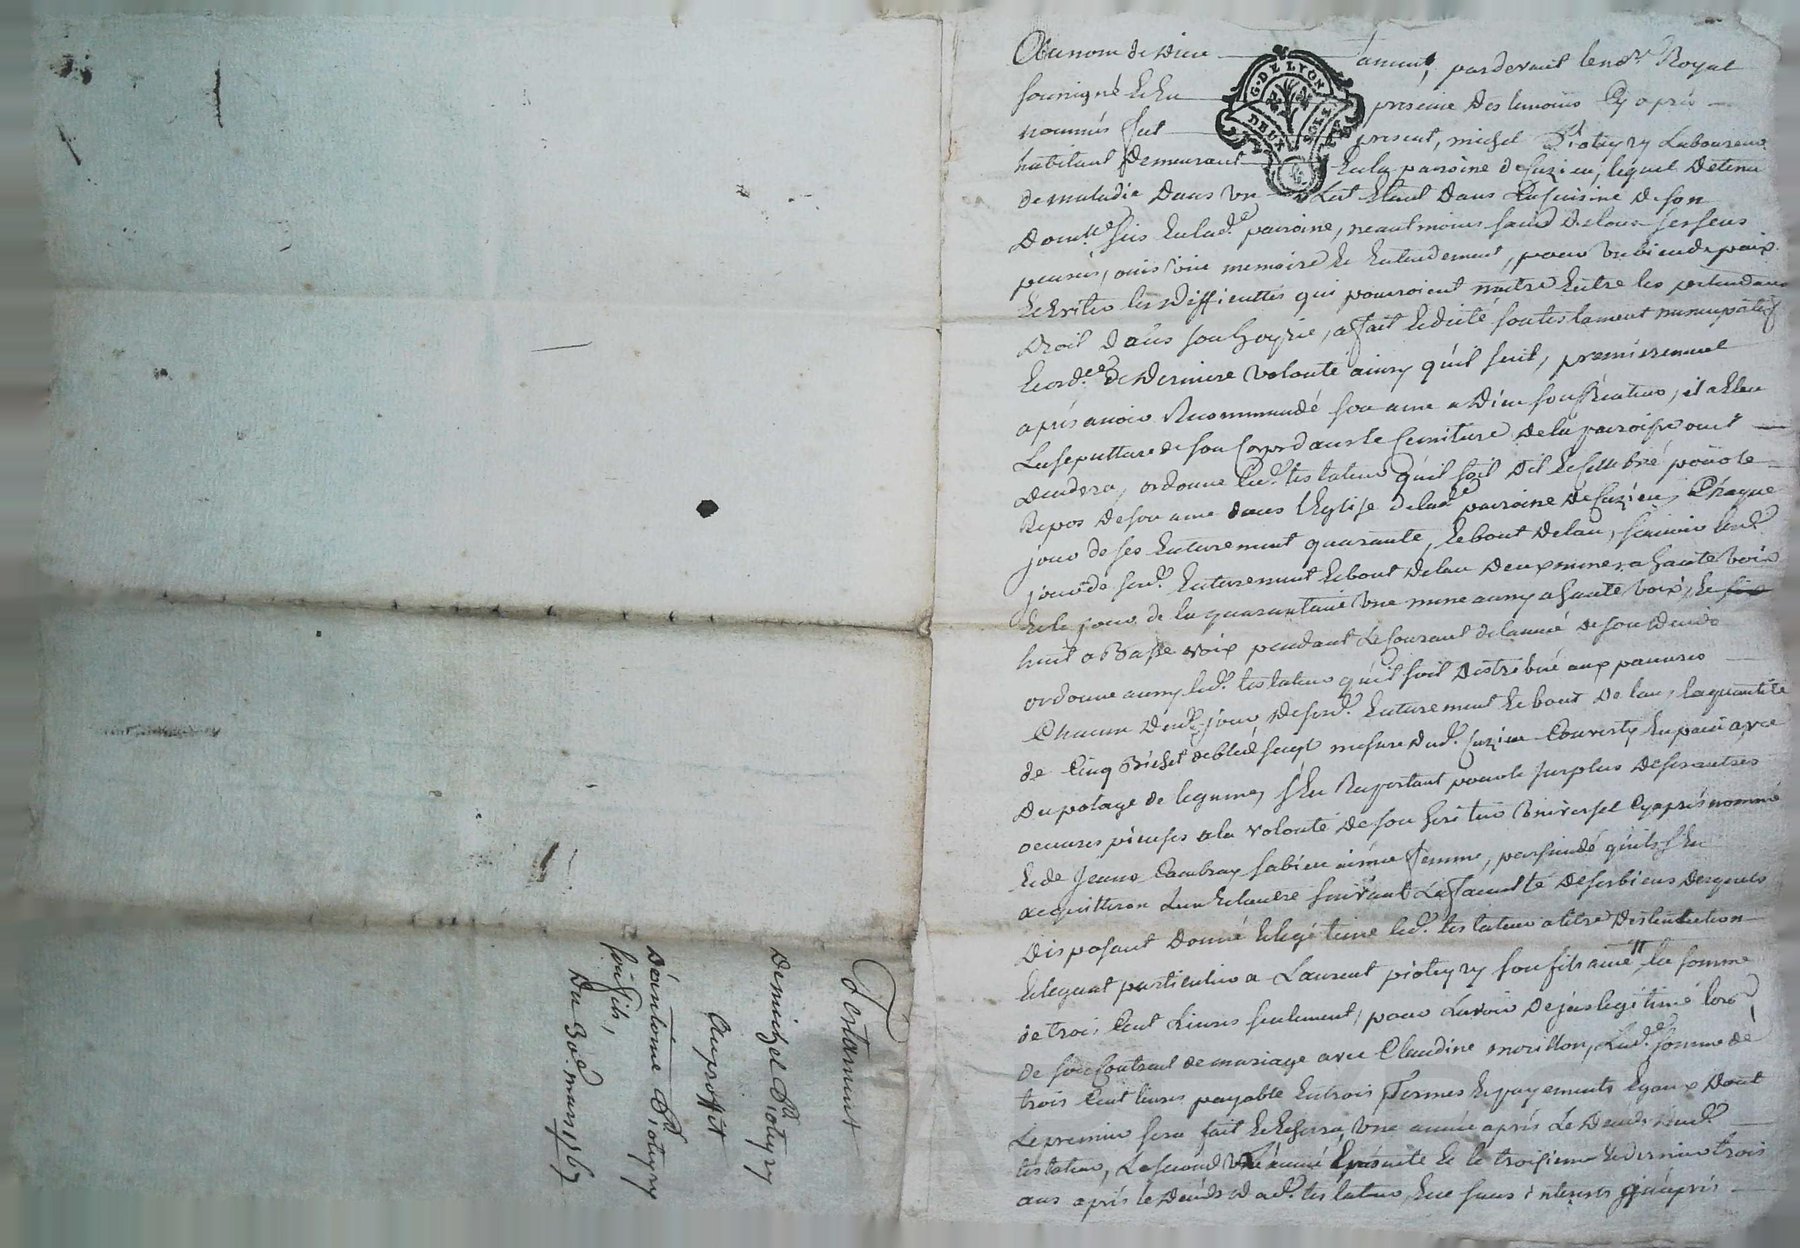 Au nom de Dieu amen, pardevant le no.re Royal
soussigné et en présence des temoins Cy après
nommés fut present, michel Pioteyry Laboureur
habitant demeurant en la paroisse de Cuzieu, lequel detenu
de maladie dans un Lit etant dans La cuisine de son
domlle sis en lade paroisse, neantmoins sain de tous ses sens
pensées, ouis vuë memoire et entendement, pour un bien de paix
et eviter les difficultes qui pourroient naitre entre les pretendants
droit dans son hoyrie, a fait et dicté son testament nuncupatif
et ord.ce de derniere volonté ainsy qu'il suit, premierement
après avoir Recommandé son ame a Dieu son Créateur, il a Eleu
La sepulture de son Corps dans le cimitiere de la paroisse ou il
decedera, ordonne led. testateur qu'il soit dit et cellebré pour le
Repos de son ame dans l'Eglise de lade paroisse de Cuzieu, Chaque
jour de ses enterrement quarante, et bout de lan, scavoir led.
jour de sond. enterrement et bout de lan deux messes a haute voix
et le jour de la quarantaine une messe aussy a haute voix, et
huit a Basse voix pendant Le courant de lannée de son deceds
ordonne aussy led. testateur qu'il soit distribué aux pauvres
Chacun desd. jour de sond. enterrement et bout de lan, la quantité
de Cinq Bichet de bled seigle mesure dud. Cuzieu Converty en pain avec
du potage de legumes, s'en Raportant pour le surplus de ses autres
oeuvres pieuses a la volonté de son heritier Universel Cy après nommé
et de Jeanne Cambray sa bien aimée femme, persuadé qu'ils s'en
acquitteron Lun et lautre suivant La faculté de ses biens desquels
disposant donne et legitime led. testateur a titre d'institution
et legat particulier a Laurent pioteyry son fils aîné la somme
de trois Cent Livres seulement, pour L'avoir deja legitimé lors
de son Contrat de mariage avec Claudine morillon, Lade somme de
trois Cent livres payable en trois Termes et payements Egaux dont
Le premier sera fait et echerra une année après Le deceds dud.
testateur, Le second Lannée Ensuite et le troisieme et dernier trois
ans après le deceds dud. testateur, Le sans interets qu'après
Testament
De michel Piotyry
Au proffit
D'antoine Piotyry
son fils,
Du 30e mars 1767
G. DE LYON
DEUX SOLS